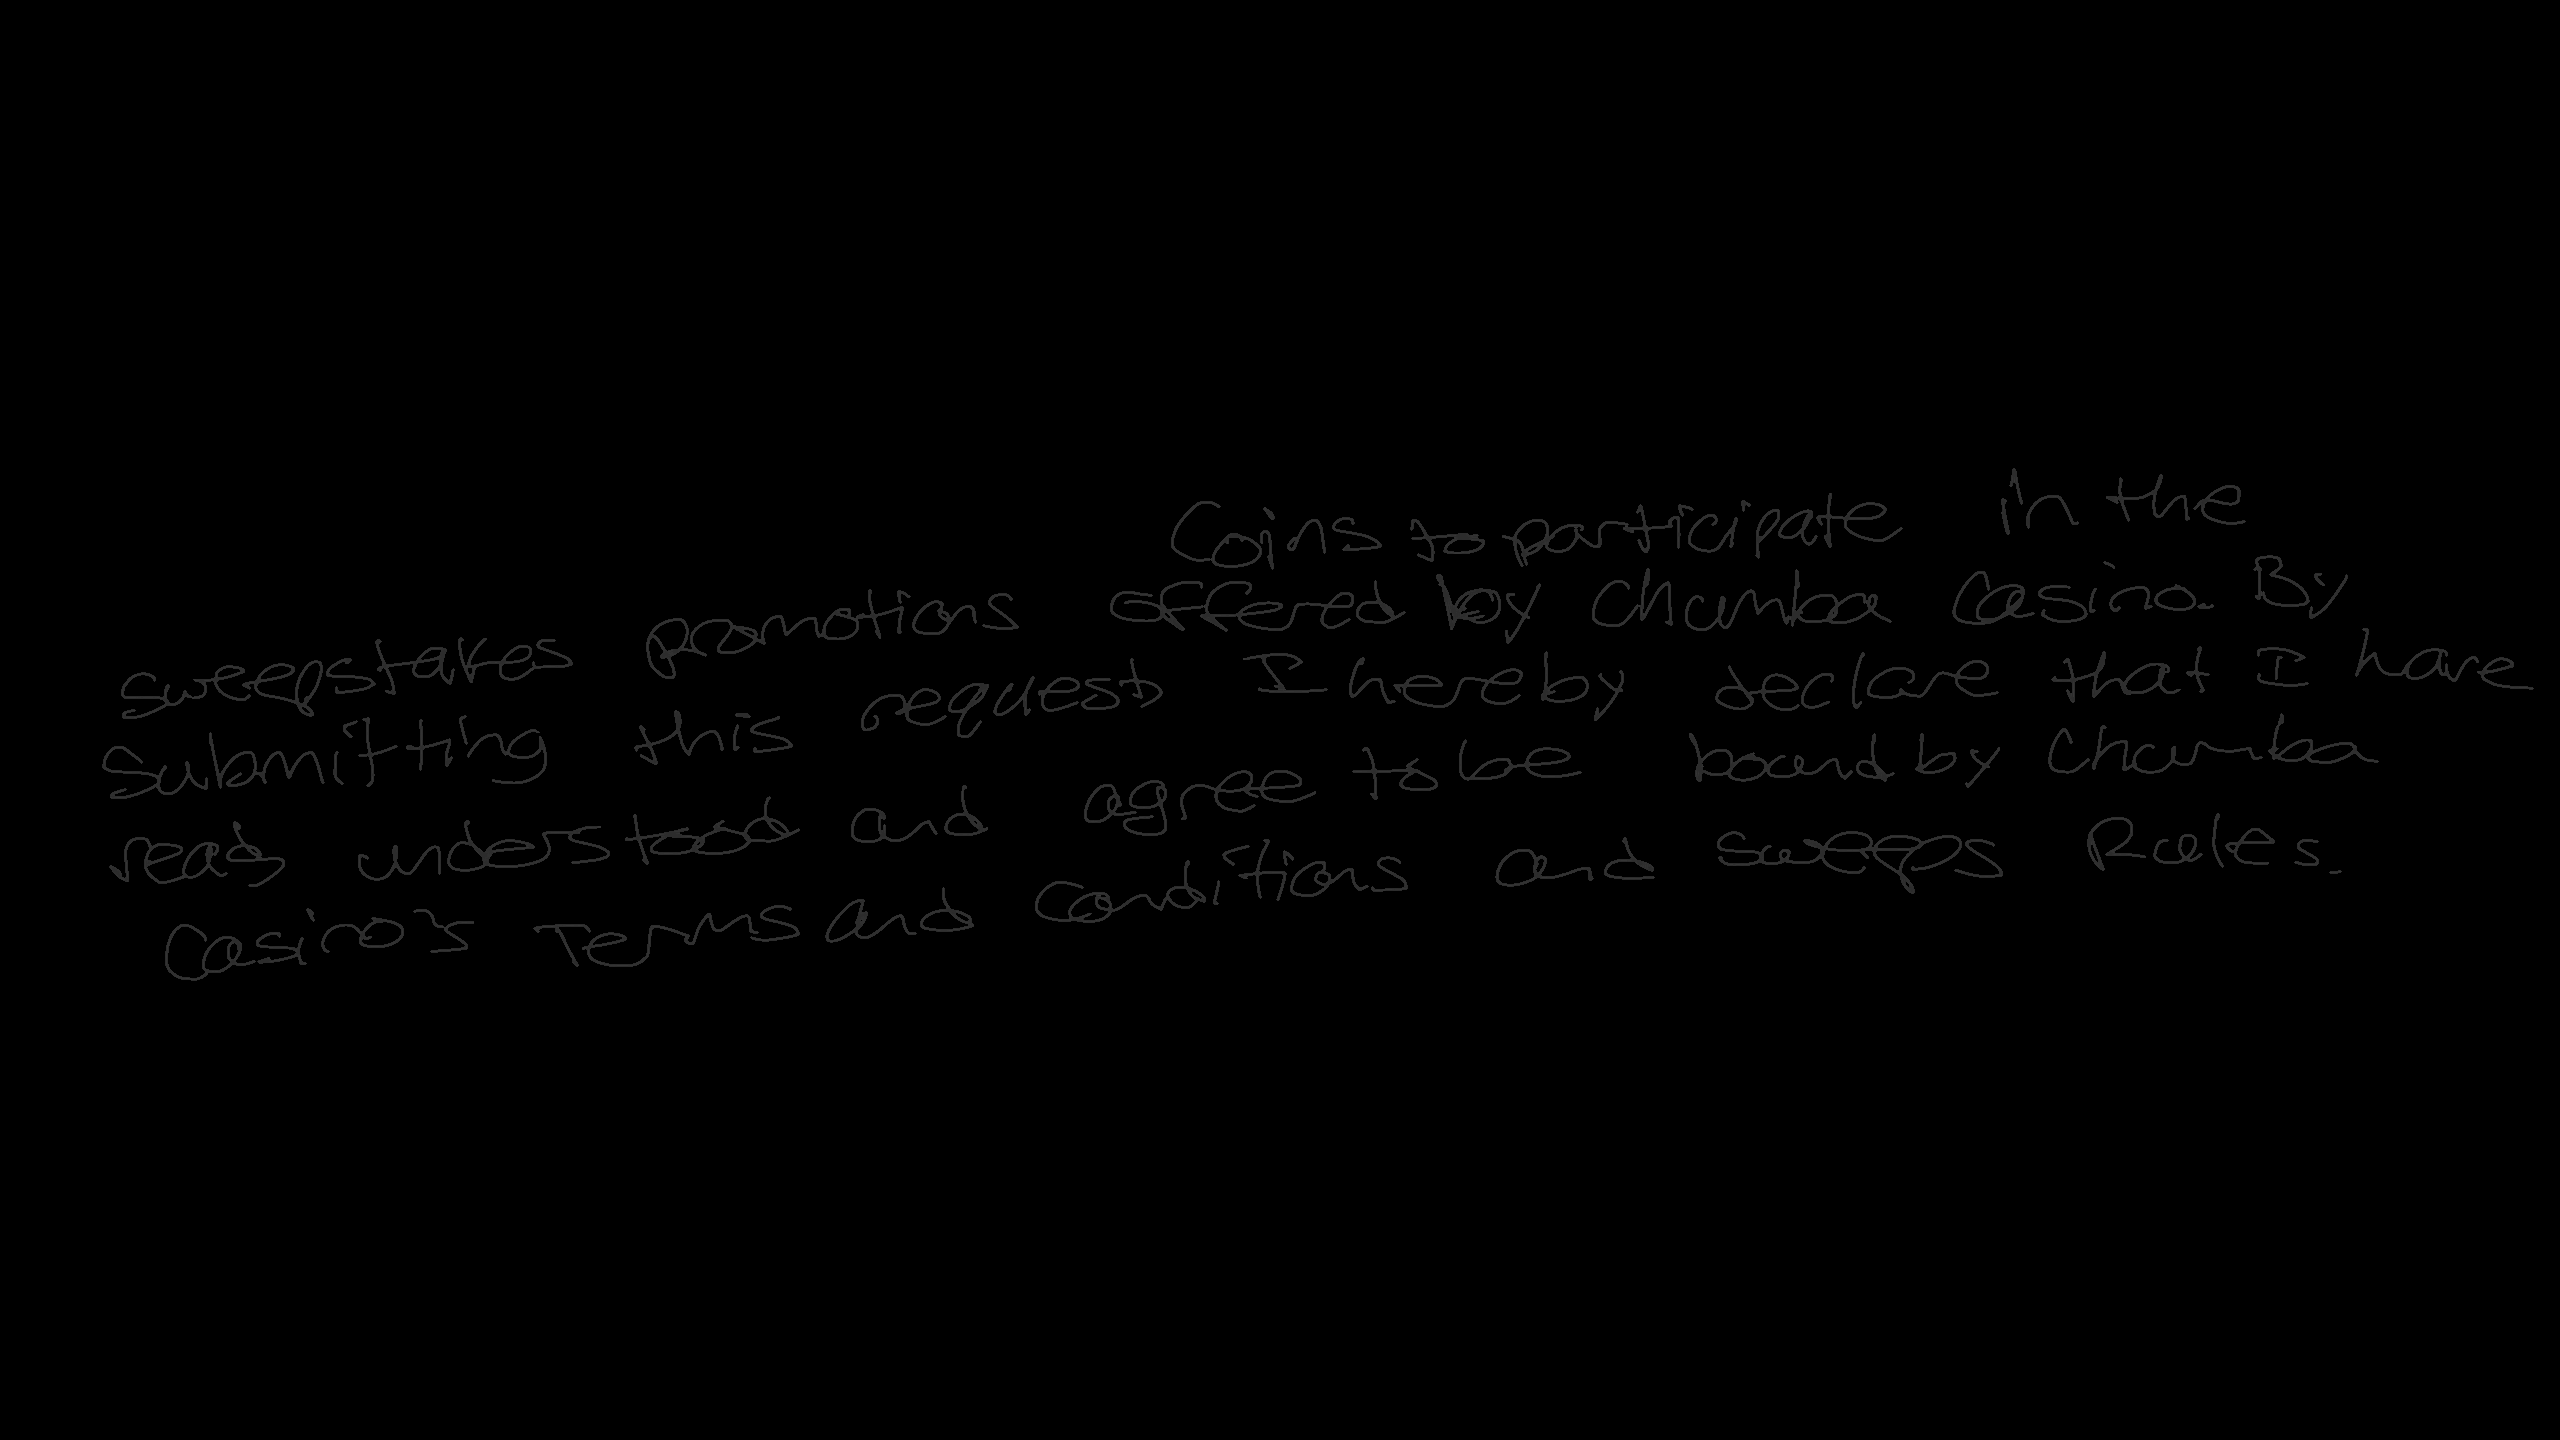 Coins to participate in the
sweepstakes promotions offered by Chumba Casino. By
submitting this request I hereby declare that I have
read understood and agree to be bound by Chumba
Casino's Terms and Conditions and Sweeps Rules.